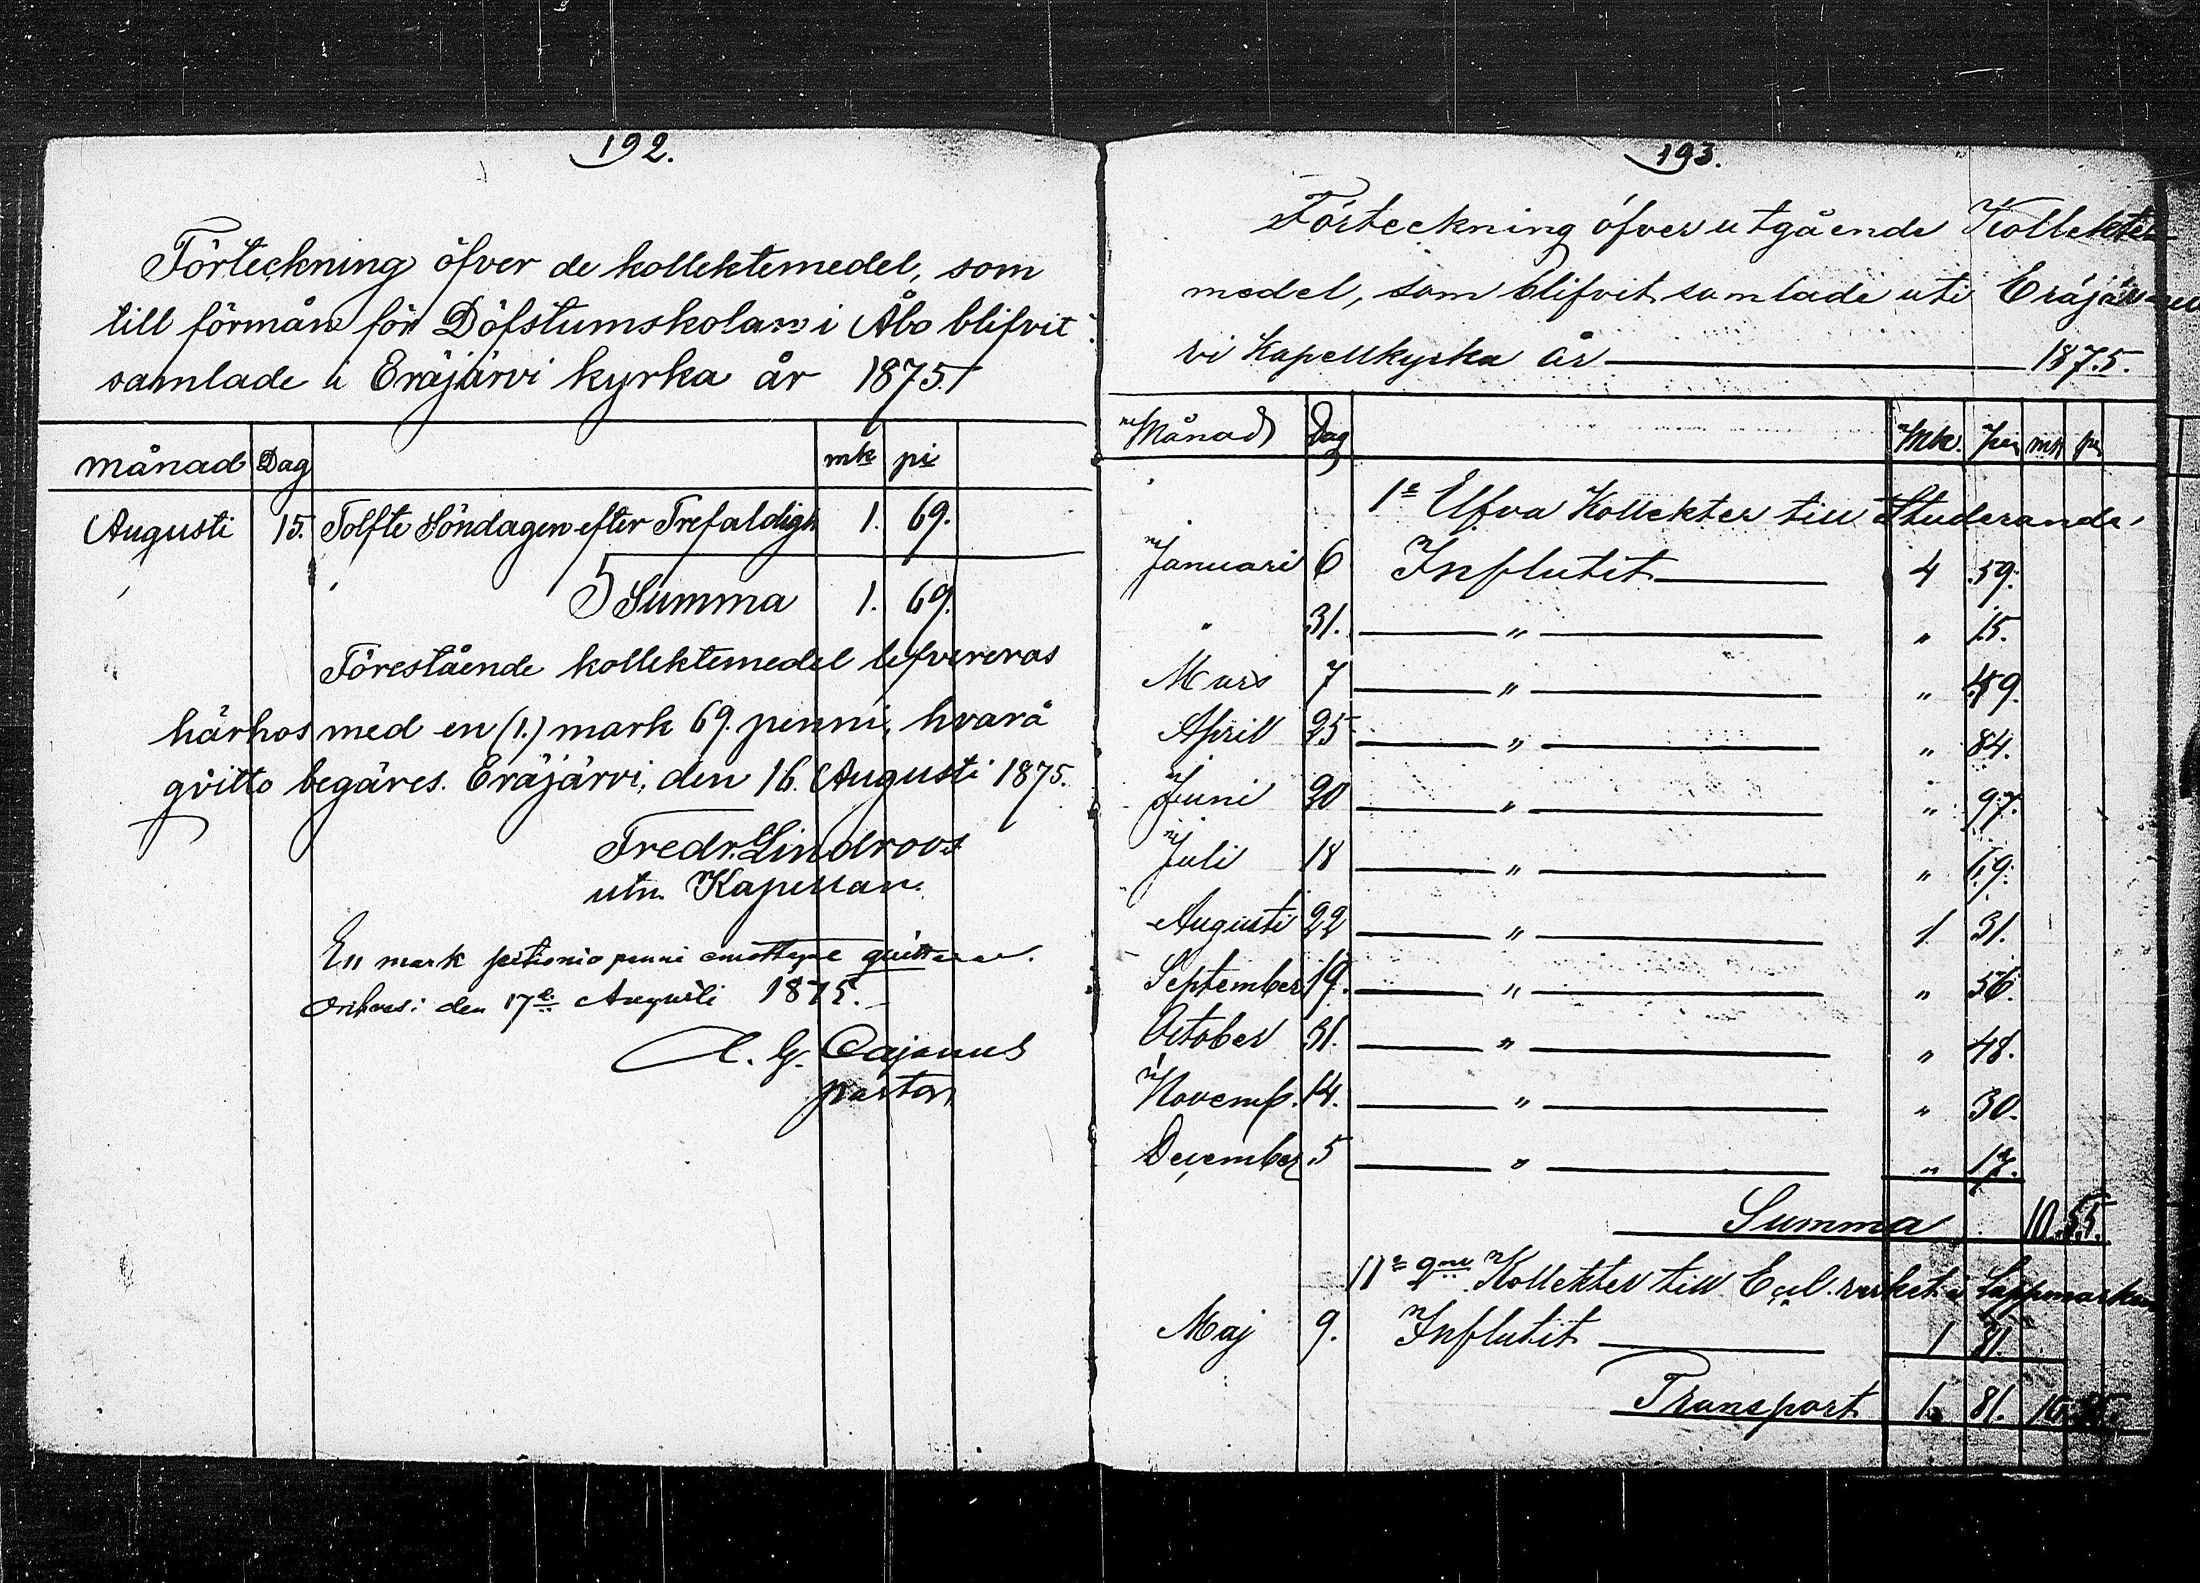 192.
Förteckning öfver de kollektemedel, som
till förmån för Döfstumskolan i Åbo blifvit
samlade i Eräjärvi kyrka år 1875.
månad Dag mk pi
Augusti 15. Tolfte Söndagen efter Trefaldigh 1. 69.
Summa 1. 69.
Förestående kollektemedel lefvereras
härhos med en (1.) mark 69. penni, hvarå
qvitto begäres. Eräjärvi, den 16. Augusti 1875.
Fredr. Lindroos
utn. Kapellan.
En mark sextionio penni emottagne quitteras.
Orihvesi den 17de Augusti 1875.
A. G. Cajanus
pastor
193.
Förteckning öfver utgående Kollekte
medel, som blifvit samlade uti Eräjär
vi Kapellkyrka år 1875.
Månad Dag Mk. pi mk pi
1e Elfva Kollekter till Studerande
Januari 6 Influtit 4 59.
" 31. " " 15.
Mars 7 " " 49.
April 25 " " 84.
Juni 20 " " 97.
Juli 18 " " 69.
Augusti 22 " 1. 31.
September 19. " " 56.
October 31. " " 48.
Novemb. 14. " " 30.
December 5 " " 17.
Summa 10. 55.
11e 2ne Kollekter till Ecel. verket i Lappmarken
Maj 9. Influtit 1 81.
Transport 1. 81. 10. 55.